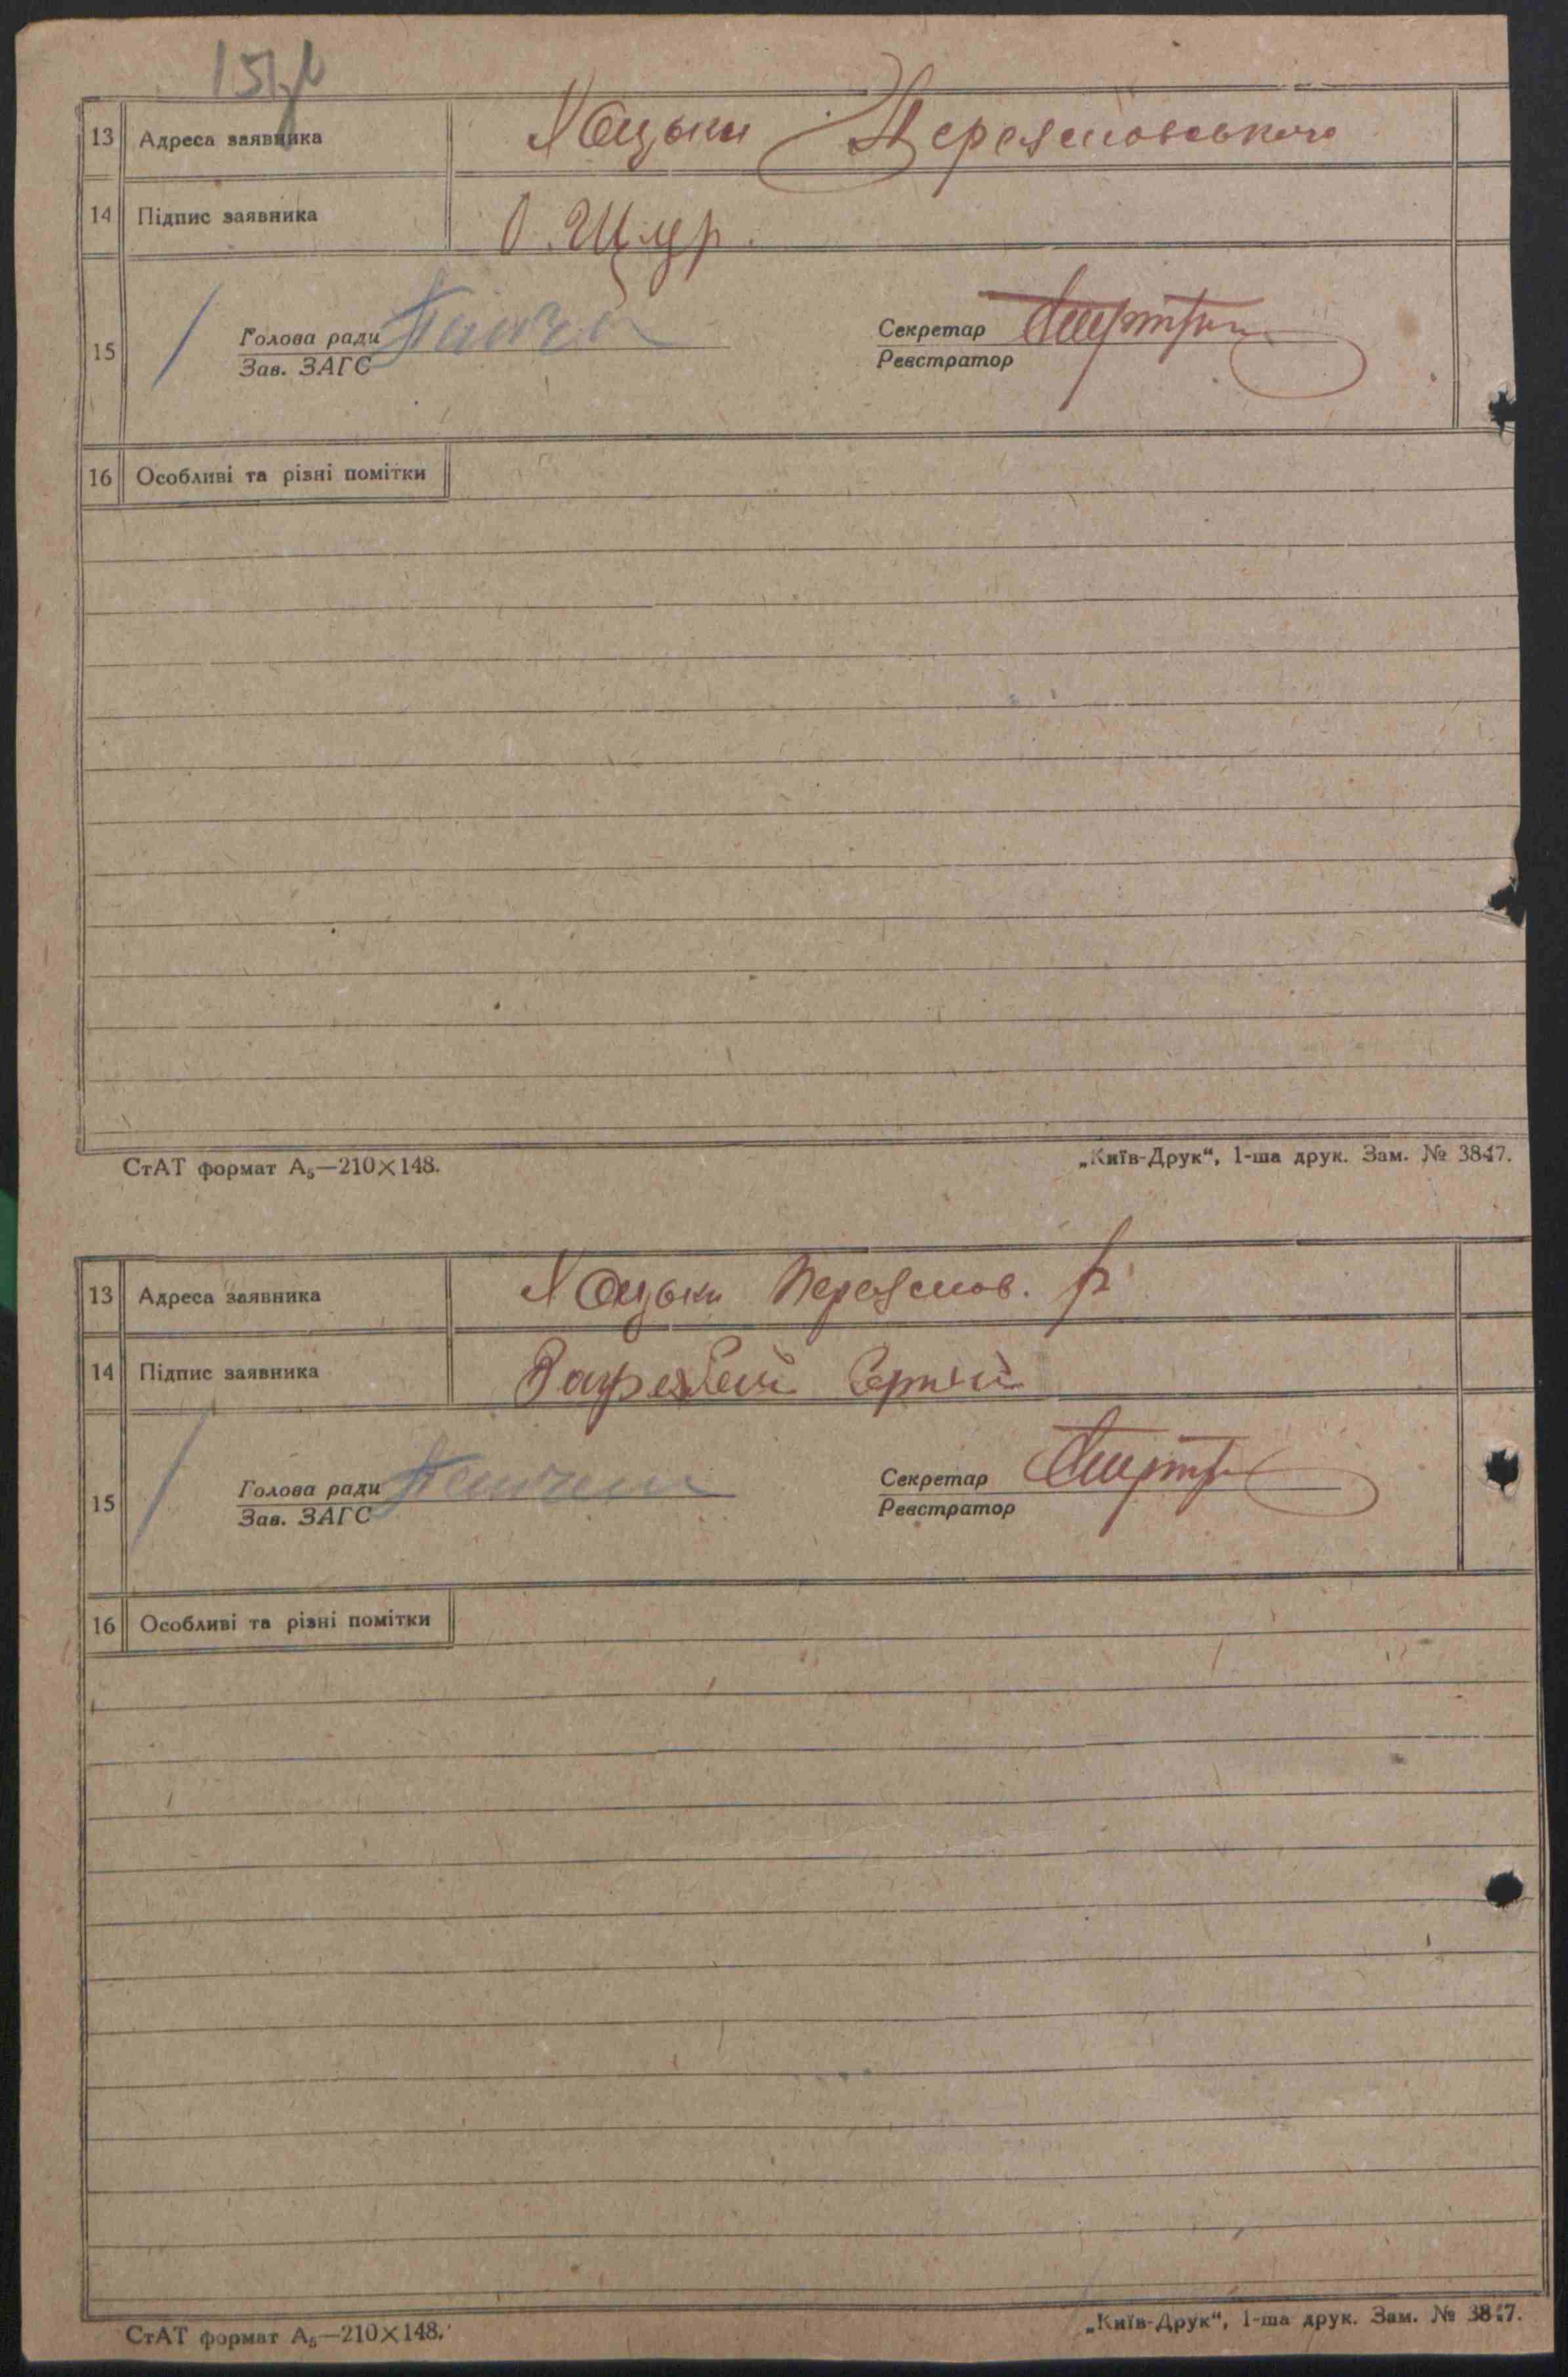 151
13 Адреса заявника Хоцьки Переяславського
14 Підпис заявника О. Щур.
15 Голова ради Секретар
Зав. ЗАГС Реєстратор
16 Особливі та різні помітки
СтАТ формат А₅—210×148. „Київ-Друк“, 1-ша друк. Зам. № 3847.
13 Адреса заявника Хоцьки Переяслов. р
14 Підпис заявника Сергій
15 Голова ради Секретар
Зав. ЗАГС Реєстратор
16 Особливі та різні помітки
СтАТ формат А₅—210×148. „Київ-Друк“, 1-ша друк. Зам. № 3847.